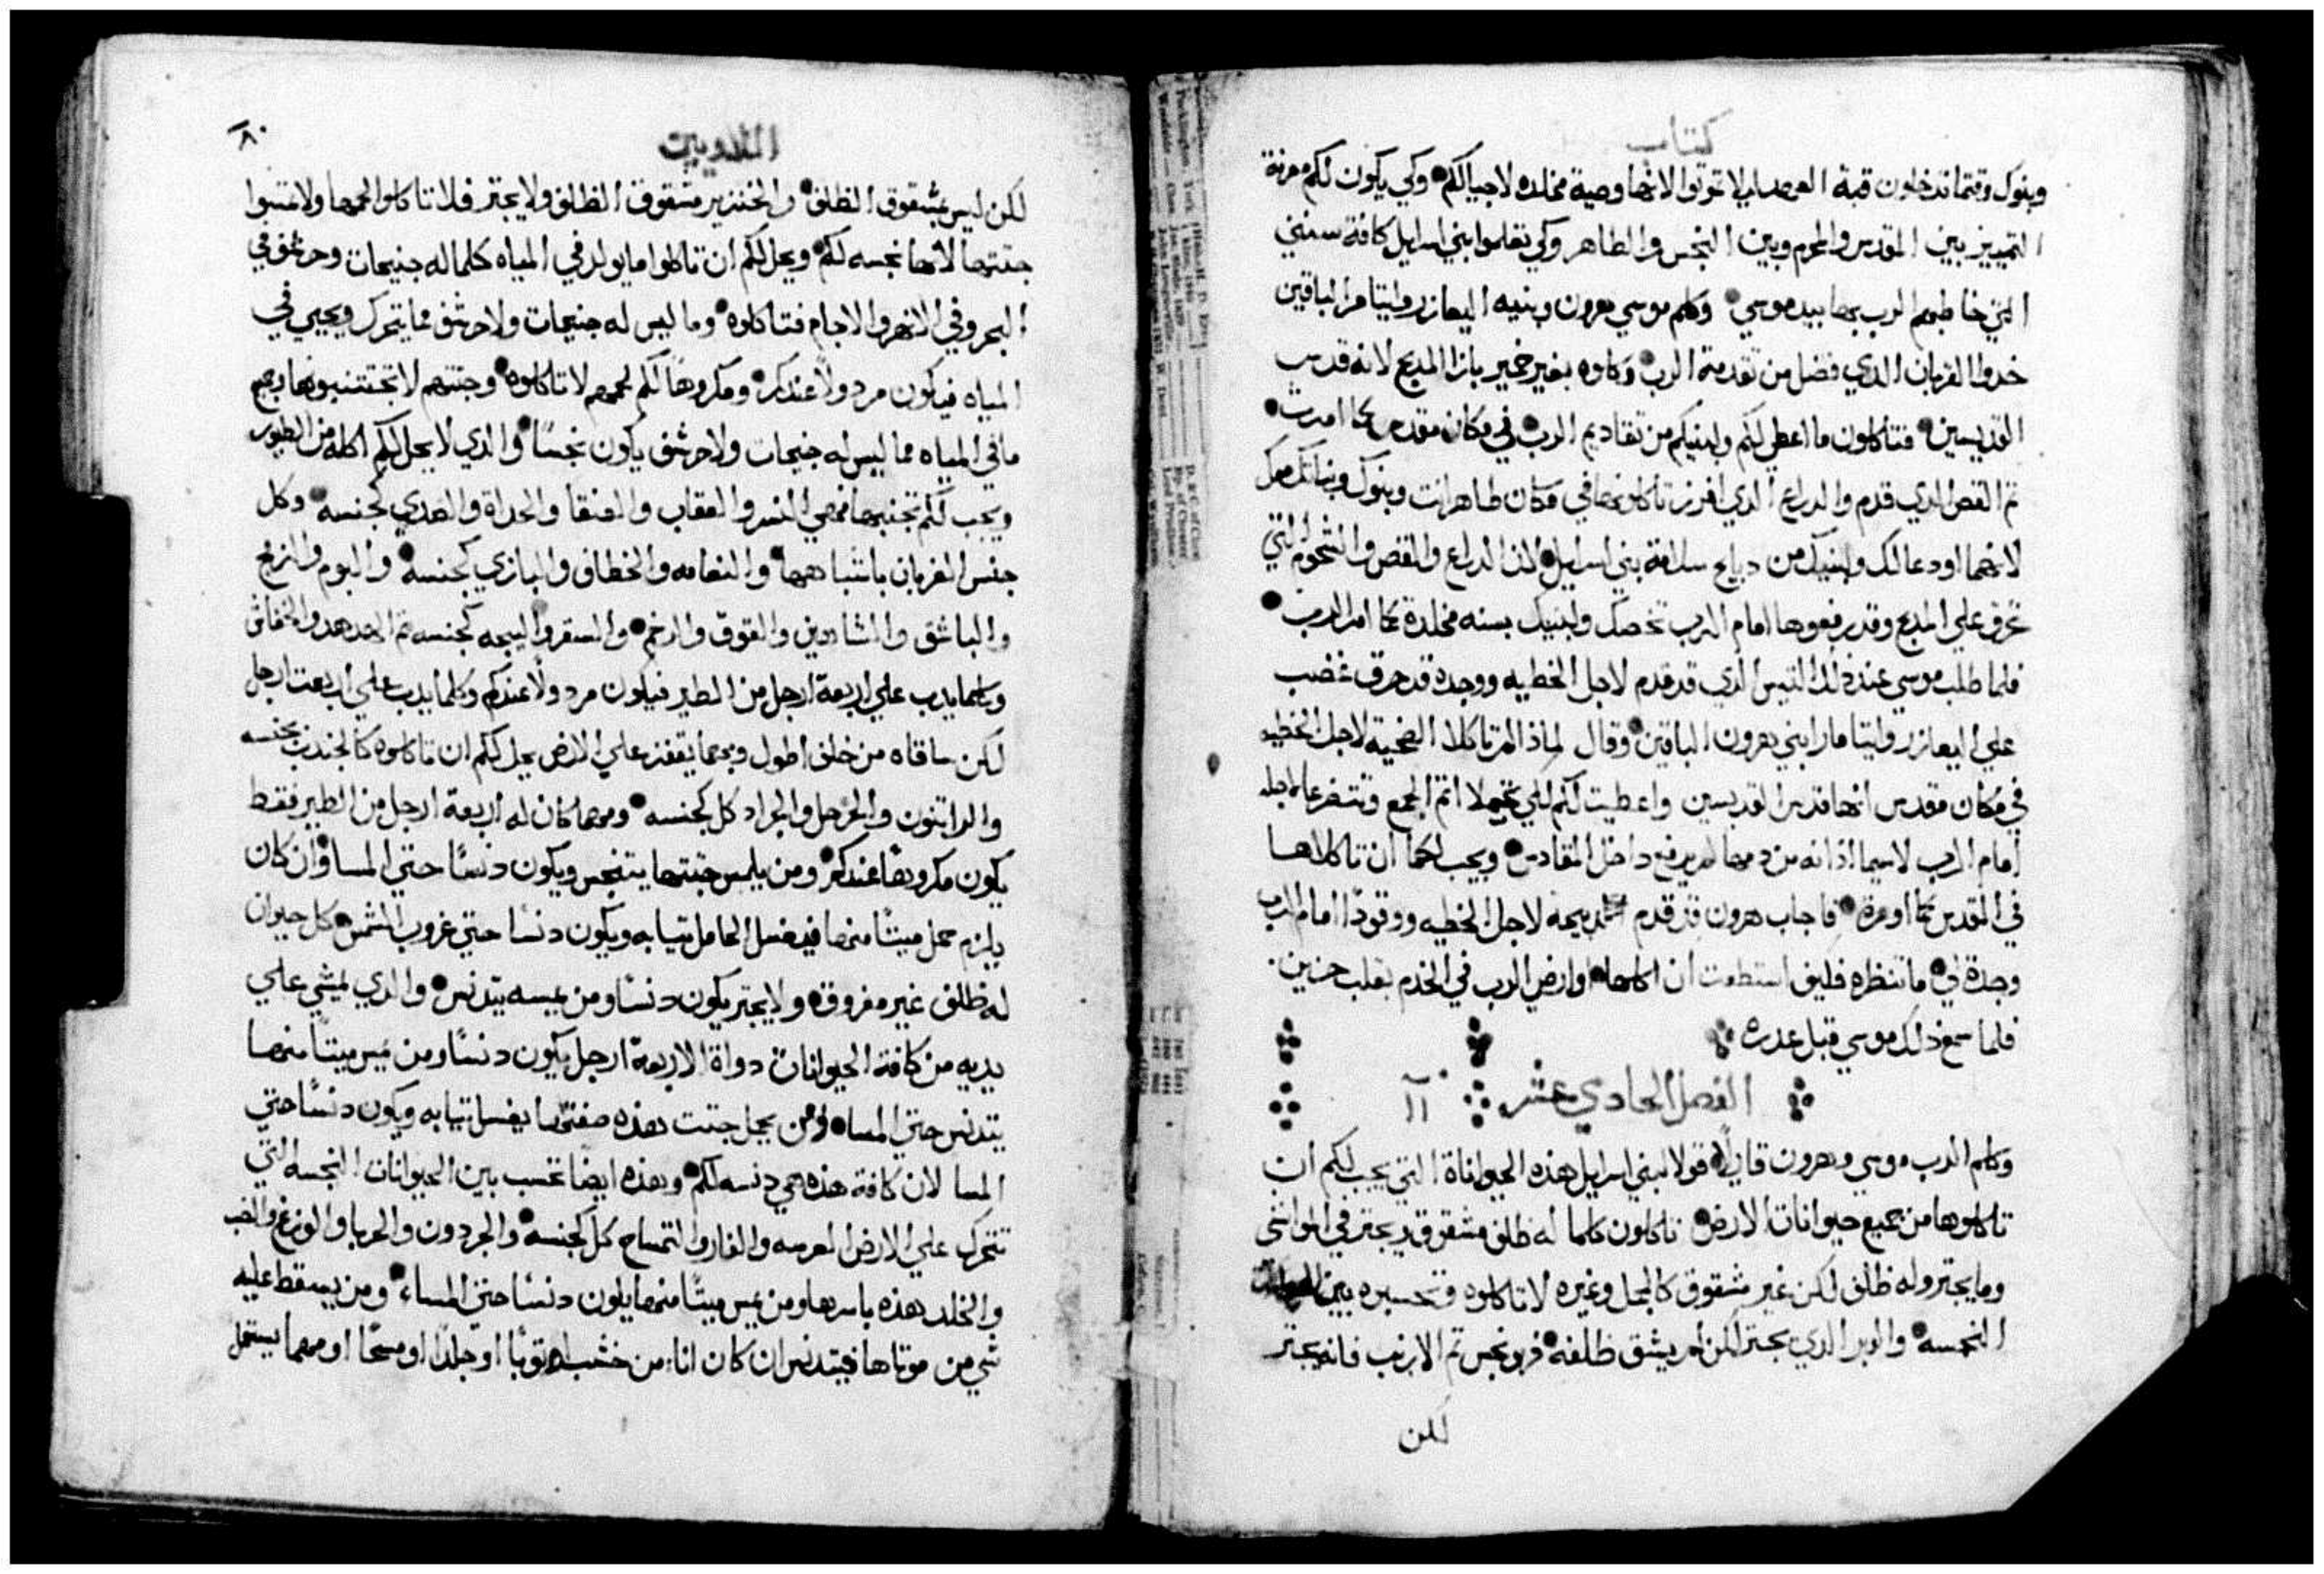 كتاب
وبنوك وقتما تدخلون قبة العهد ليلا توتوا لانها وصية مخلده لاجيالكم وكي يكون لكم معرفة
التمييز بين المقدس والمحرم وبين النجس والطاهر وكي تعلموا بني اسرايل كافة سنني
التي خاطبهم الرب بها بيد موسي وكلم موسي هرون وبنيه اليعازر وايتامر الباقين
خدوا القربان الدي فضل من تقدمة الرب وكلوه بغير خمير بازا المدبح لانه قدس
القديسين فتاكلون ما اعطي لكم ولبنيكم من تقاديم الرب في مكان مقدس كما امرت
تم القص الدي قدم والدراع الدي افرز تاكلونهما في مكان طاهر انت وبنوك وبناتك معك
لانهما اودعا لك ولبنيك من دبايح سلامة بني اسرايل لان الدراع والقص والشحوم التي
تحرق علي المدبح وقد رفعوها امام الرب تخصك ولبنيك بسنه مخلدة كما امر الرب
فلما طلب موسي عند ذلك التيس الدي قد قدم لاجل الخطيه ووجده قد حرق غضب
علي اليعازر وايتامار ابني هرون الباقين وقال لماذا لم تاكلا الضحية لاجل الخطيه
في مكان مقدس انها قدس القديسين واعطيت لكم لكي تحملا اتم الجمع وتتضرعا لاجله
امام الرب لاسيما اذ انه من دمها لم يرفع داخل المقادس ويجب لكما ان تاكلاها
في القدس كما اومرة فاجاب هرون قد قدم دبيحه لاجل الخطيه ووقودًا امام الرب
وجدة لي ما تنظره فكيف استطعت ان اكلها او ارضي الرب في الخدم بقلب حزين
فلما سمع ذلك موسي قبل عدره
الفصل الحادي عشر ١١
وكلم الرب موسي وهرون قايلًا قولا لبني اسرايل هذه الحيواناة التي يجب لكم ان
تاكلوها من جميع حيوانات الارض تاكلون كلما له ظلف مشقوق ويجتر في المواشي
وما يجتر وله ظلف لكن غير مشقوق كالجمل وغيره لا تاكلوه وتحسبره بين
النجسه والوبر الدي يجتر لكن لم يشق ظلفه فهو نجس تم الارنب فانه يجتر
لكن
اللاويين
٨٠
لكن ليس بمشقوق الظلف والخنزير مشقوق الظلف ولا يجتر فلا تاكلوا لحمها ولا تمسوا
جتتها لانها نجسه لكم ويحل لكم ان تاكلوا ما يولد في المياه كلما له جنيحات وحرشف في
البحر وفي الانهر والاجام فتاكلوه وما ليس له جنيحات ولا حرشف مما يتحرك ويحيي في
المياه فيكون مردولًا عندكم ومكروهًا لكم لحمهم لا تاكلوه وجتتهم لا تجتنبوها جميع
ما في المياه مما ليس له جنيحات ولا حرشف يكون نجسًا والدي لا يحل لكم اكله من الطيور
ويجب لكم تجنبها فهي النسر والعقاب والعنقا والحداة والصدي كجنسه وكل
جنس الغربان باشباهها والنعامه والخطاف والبازي كجنسه والبوم والزمج
والباشق والشاهين والقوق والرخم والسقر والببجه كجنسه تم الهدهد والخفاش
وكلما يدب علي اربعة ارجل من الطير فيكون مردولًا عندكم وكلما يدب علي اربعت ارجل
لكن ساقاه من خلف اطول وبهما يقفز علي الارض يحل لكم ان تاكلوه كالجندب بجنسه
والراتنون والحرجل والجراد كل كجنسه ومهما كان له اربعة ارجل من الطير فقط
يكون مكروهًا عندكم ومن يلمس جتتها يتنجس ويكون دنسًا حتي المسا وان كان
يلزم حمل ميتًا منها فيغسل الحامل تيابه ويكون دنسا حتي غروب الشمس كل حيوان
له ظلف غير مفروقه ولا يجتر يكون دنسًا ومن يمسه يتدنس والدي يمشي علي
يديه من كافة الحيوانات دواة الاربعة ارجل يكون دنسًا ومن يمس ميتًا منها
يتدنس حتي المسا ومن يحمل جتت هذه صفتها يغسل تيابه ويكون دنسًا حتي
المسا لان كافة هذه هي دنسه لكم وهذه ايضًا تحسب بين الحيوانات النجسه التي
تتحرك علي الارض العرسه والفار والتمساح كل كجنسه والجردون والحربا والوزغ والضب
والخلد هذه باسرها ومن يمس ميتًا منها يكون دنسًا حتي المساء ومن يسقط عليه
شي من موتاها فيتدنس ان كان اناء من خشب او توبًا او جلدًا او مسحًا او مهما يستعمل